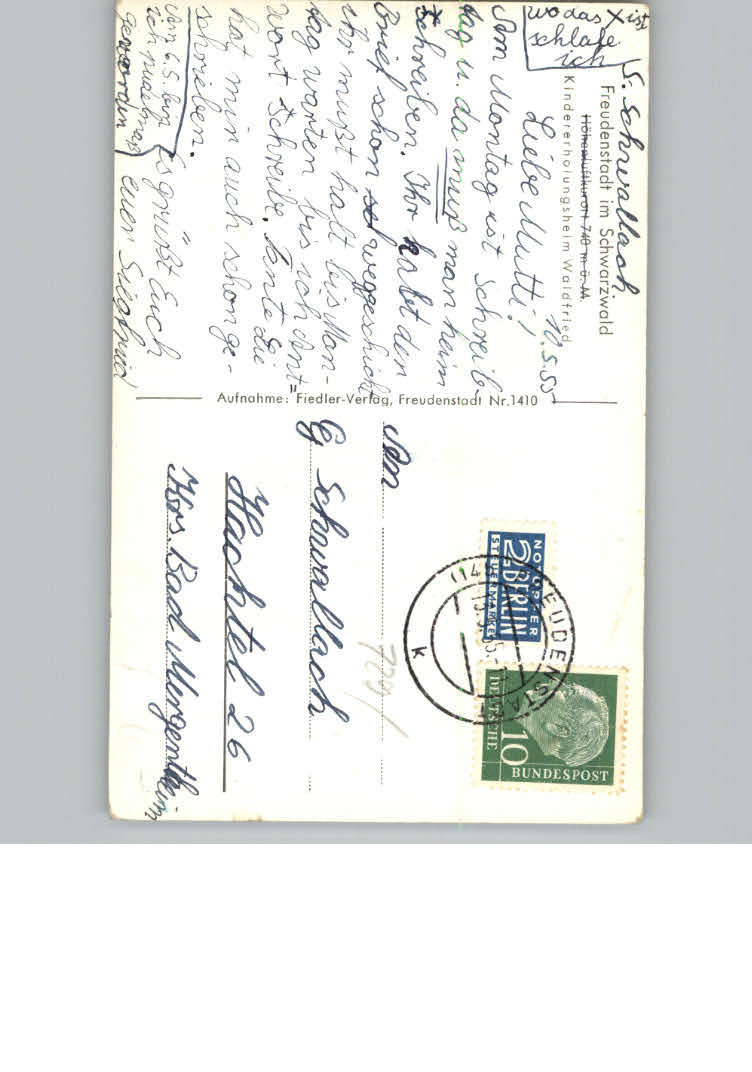 wo das X ist
schlafe
ich
S. Schwallach
Freudenstadt im Schwarzwald
Höhenluftkurort 740 m ü. M.
Kindererholungsheim Waldfried
10.5.55
Liebe Mutti!
Am Montag ist Schreib-
tag u. da muß man heim
schreiben. Ihr habet den
Brief schon weggeschickt
ihr mußt halt bis Mon-
tag warten bis ich Ant-
wort schreibe. Tante
hat mir auch schon ge-
schrieben.
Es grüßt Euch
euer Siegfried
vom 6.5.
ich
geworden
Aufnahme: Fiedler-Verlag, Freudenstadt Nr.1410
An
G Schwallach
Hachtel 26
Krs. Bad Mergentheim
7291
NOTOPFER
2 BERLIN
STEUERMARKE
FREUDENSTADT
k
10
DEUTSCHE
BUNDESPOST